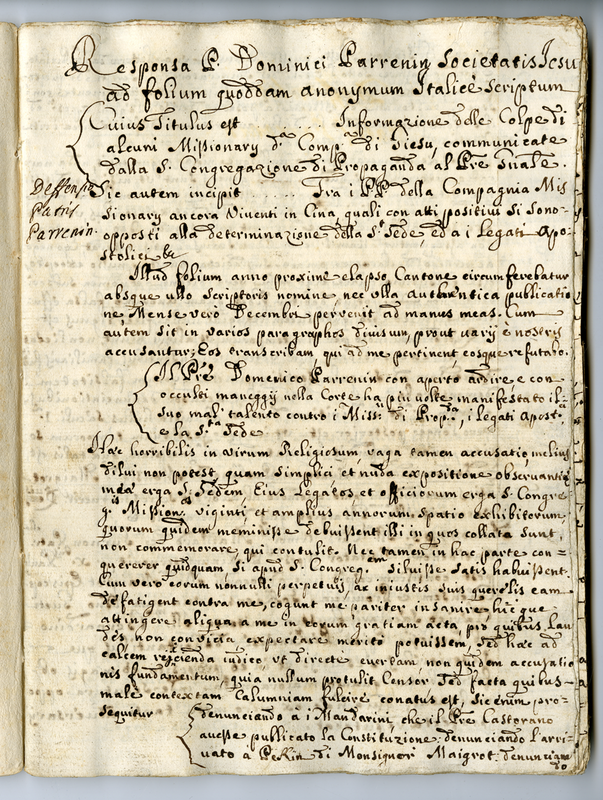 Responsa P. Dominici Parrenin Societatis Iesu
ad folium quoddam anonymum Italicè scriptum
Cuius Titulus est ........ Informazione delle Colpe di
alcuni Missionary d.ª Comp.ª di Giesu, communicate
dalla S. Congregazione di Propaganda al Pre Gnãle.
Deffensio
Patris
Parrenin.
Sic autem incipit ...... Tra i PP. della Compagnia Mis
sionary ancora Viventi in Cina, quali con atti positivi si sono
opposti alla determinazione della S.ª Sede, ed a i Legati Apo=
stolici &c
Illud folium anno proxime elapso Cantone circumferebatur
absque ullo scriptoris nomine, nec ulla authentica publicatio
ne, Mense vero Decembri pervenit ad manus meas. Cum
autem sit in varios paragraphos divisum, prout varij è nostris
accusantur; Eos transcribam qui ad me pertinent, eosque refutabo.
Il Pre Domenico Parrenin con aperto ardire e con
occulti maneggij nella Corte ha piu volte manifestato il
suo mal talento contro i Miss.ri di Prop.da, i Legati Apost.ci
e la S.ta Sede
Hæc horribilis in virum Religiosum, vaga tamen accusatio, melius
dilui non potest, quam simplici et nuda expositione observantiæ
meæ erga S. Sedem, Eius Legatos et officiorum erga S. Congre
g.is Mission.os viginti et amplius annorum spatio exhibitorum
quorum quidem meminisse debuissent illi in quos collata sunt,
non commemorare, qui contulit. Nec tamen in hac parte con=
quererer quidquam si apud S. Congreg.em siluisse satis habuissent.
Cum vero eorum nonnulli perpetuis, ac iniustis suis querelis eam
defatigent contra me, cogunt me pariter insanire hicque
attingere aliqua a me in eorum gratiam acta, pro quibus lau
des non convicia expectare merito potuissem, sed hæc ad
calcem reijcienda iudico ut directè evertam non quidem accusatio
nis fundamentum, quia nullum protulit Censor sed facta quibus
malè contextam Calumniam fulcire conatus est, sic enim pro=
sequitur
denunciando à i Mandarini che il Pre Castorano
avesse publicato la Constituzione, denunciando l'arri=
vato a PeKin di Monsignor Maigrot, denunzian
do